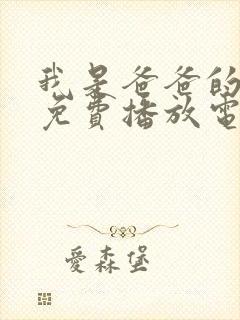 我是爸爸的
免費播放電
愛森堡